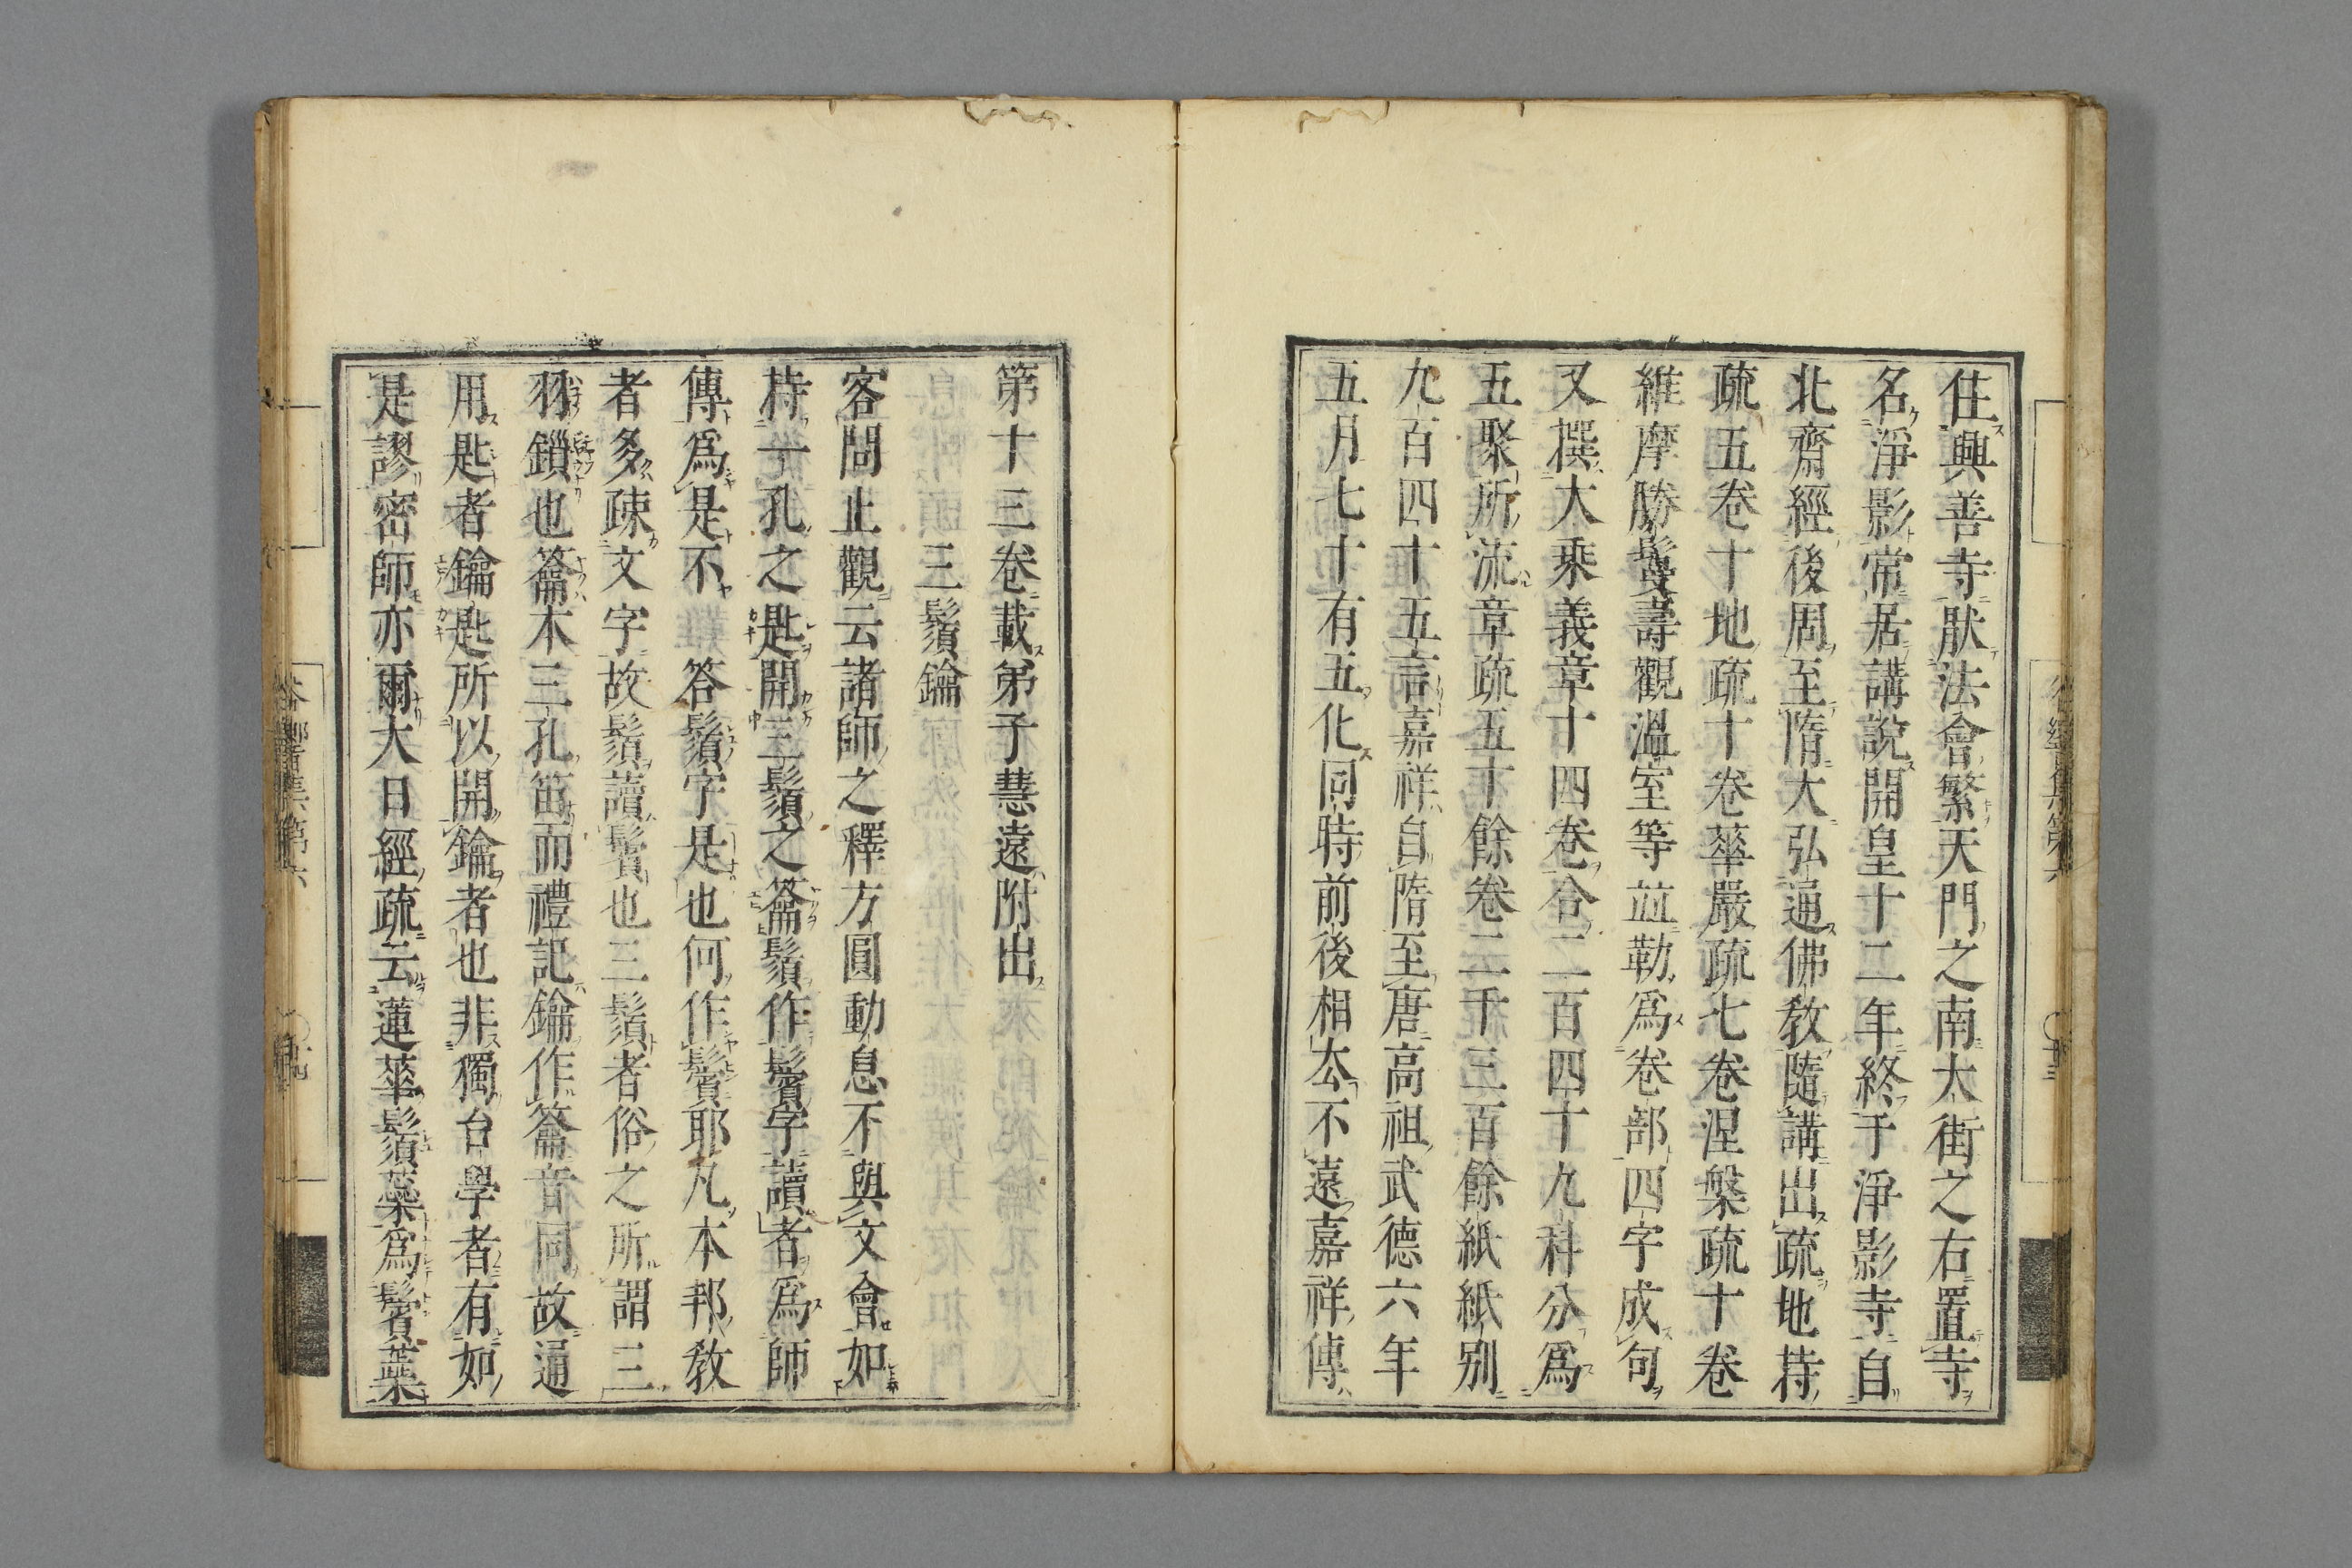 住興善寺厭法會繁天門之南大街之右置寺
名淨影常居講說開皇十二年終于淨影寺自
北齊經後周至隋大弘通佛教隨講出疏地持
疏五卷十地疏十卷華嚴疏七卷涅槃疏十卷
維摩勝鬘壽觀溫室等並勒爲卷部四字成句
又撰大乘義章十四卷合二百四十九科分爲
五聚所流章疏五十餘卷二千三百餘紙紙別
九百四十五言嘉祥自隋至唐高祖武德六年
五月七十有五化同時前後相厺不遠嘉祥傳
第十三卷載弟子慧遠附出
三鬚鑰
客問止觀云諸師之釋方圓動息不與文會如
持一孔之匙開三鬚之籥鬚作鬢字讀者爲師
傳爲是不答鬚字是也何作鬢耶凡本邦教
者多疎文字故鬚讀鬢也三鬚者俗之所謂三
羽鎻也籥本三孔笛而禮記鑰作籥音同故通
用匙者鑰匙所以開鑰者也非獨台學者有如
是謬密師亦爾大日經疏云蓮華鬚蘂爲鬢葉
谷響集第六